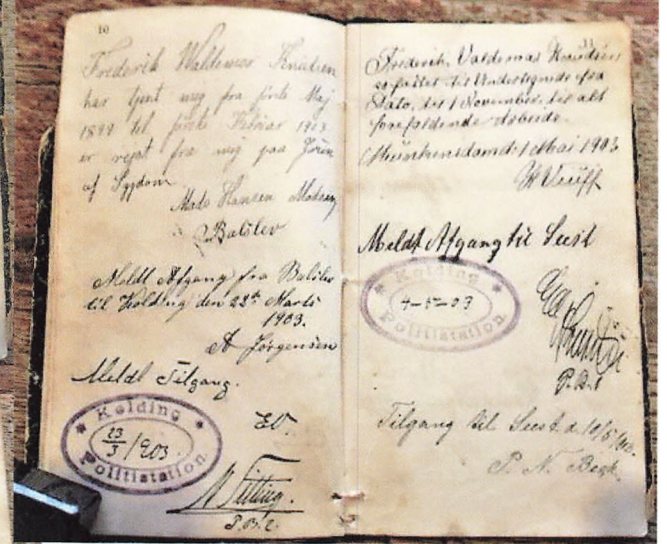 10
Frederik Waldemar Knudsen
har tjent mig fra første Maj
1899 til første Februar 1903
er rejst fra mig paa
af Sygdom
Mads Hansen Madsen
Balslev
Meldt Afgang fra Balslev
til Kolding den 22de Marts
1903.
A Jörgensen
Meldt Tilgang.
Kolding
23/3 1903
Politistation
N
P.B.
31
Frederik Valdemar Knudsen
er fæstet til Undertegnede fra
Dato, til 1 November, til alt
forefaldende Arbeide.
d. 1 Mai 1903
Meldt Afgang til Seest
Kolding
4-5-03
Politistation
P.B.
Tilgang til Seest d. 10/5
P. N.